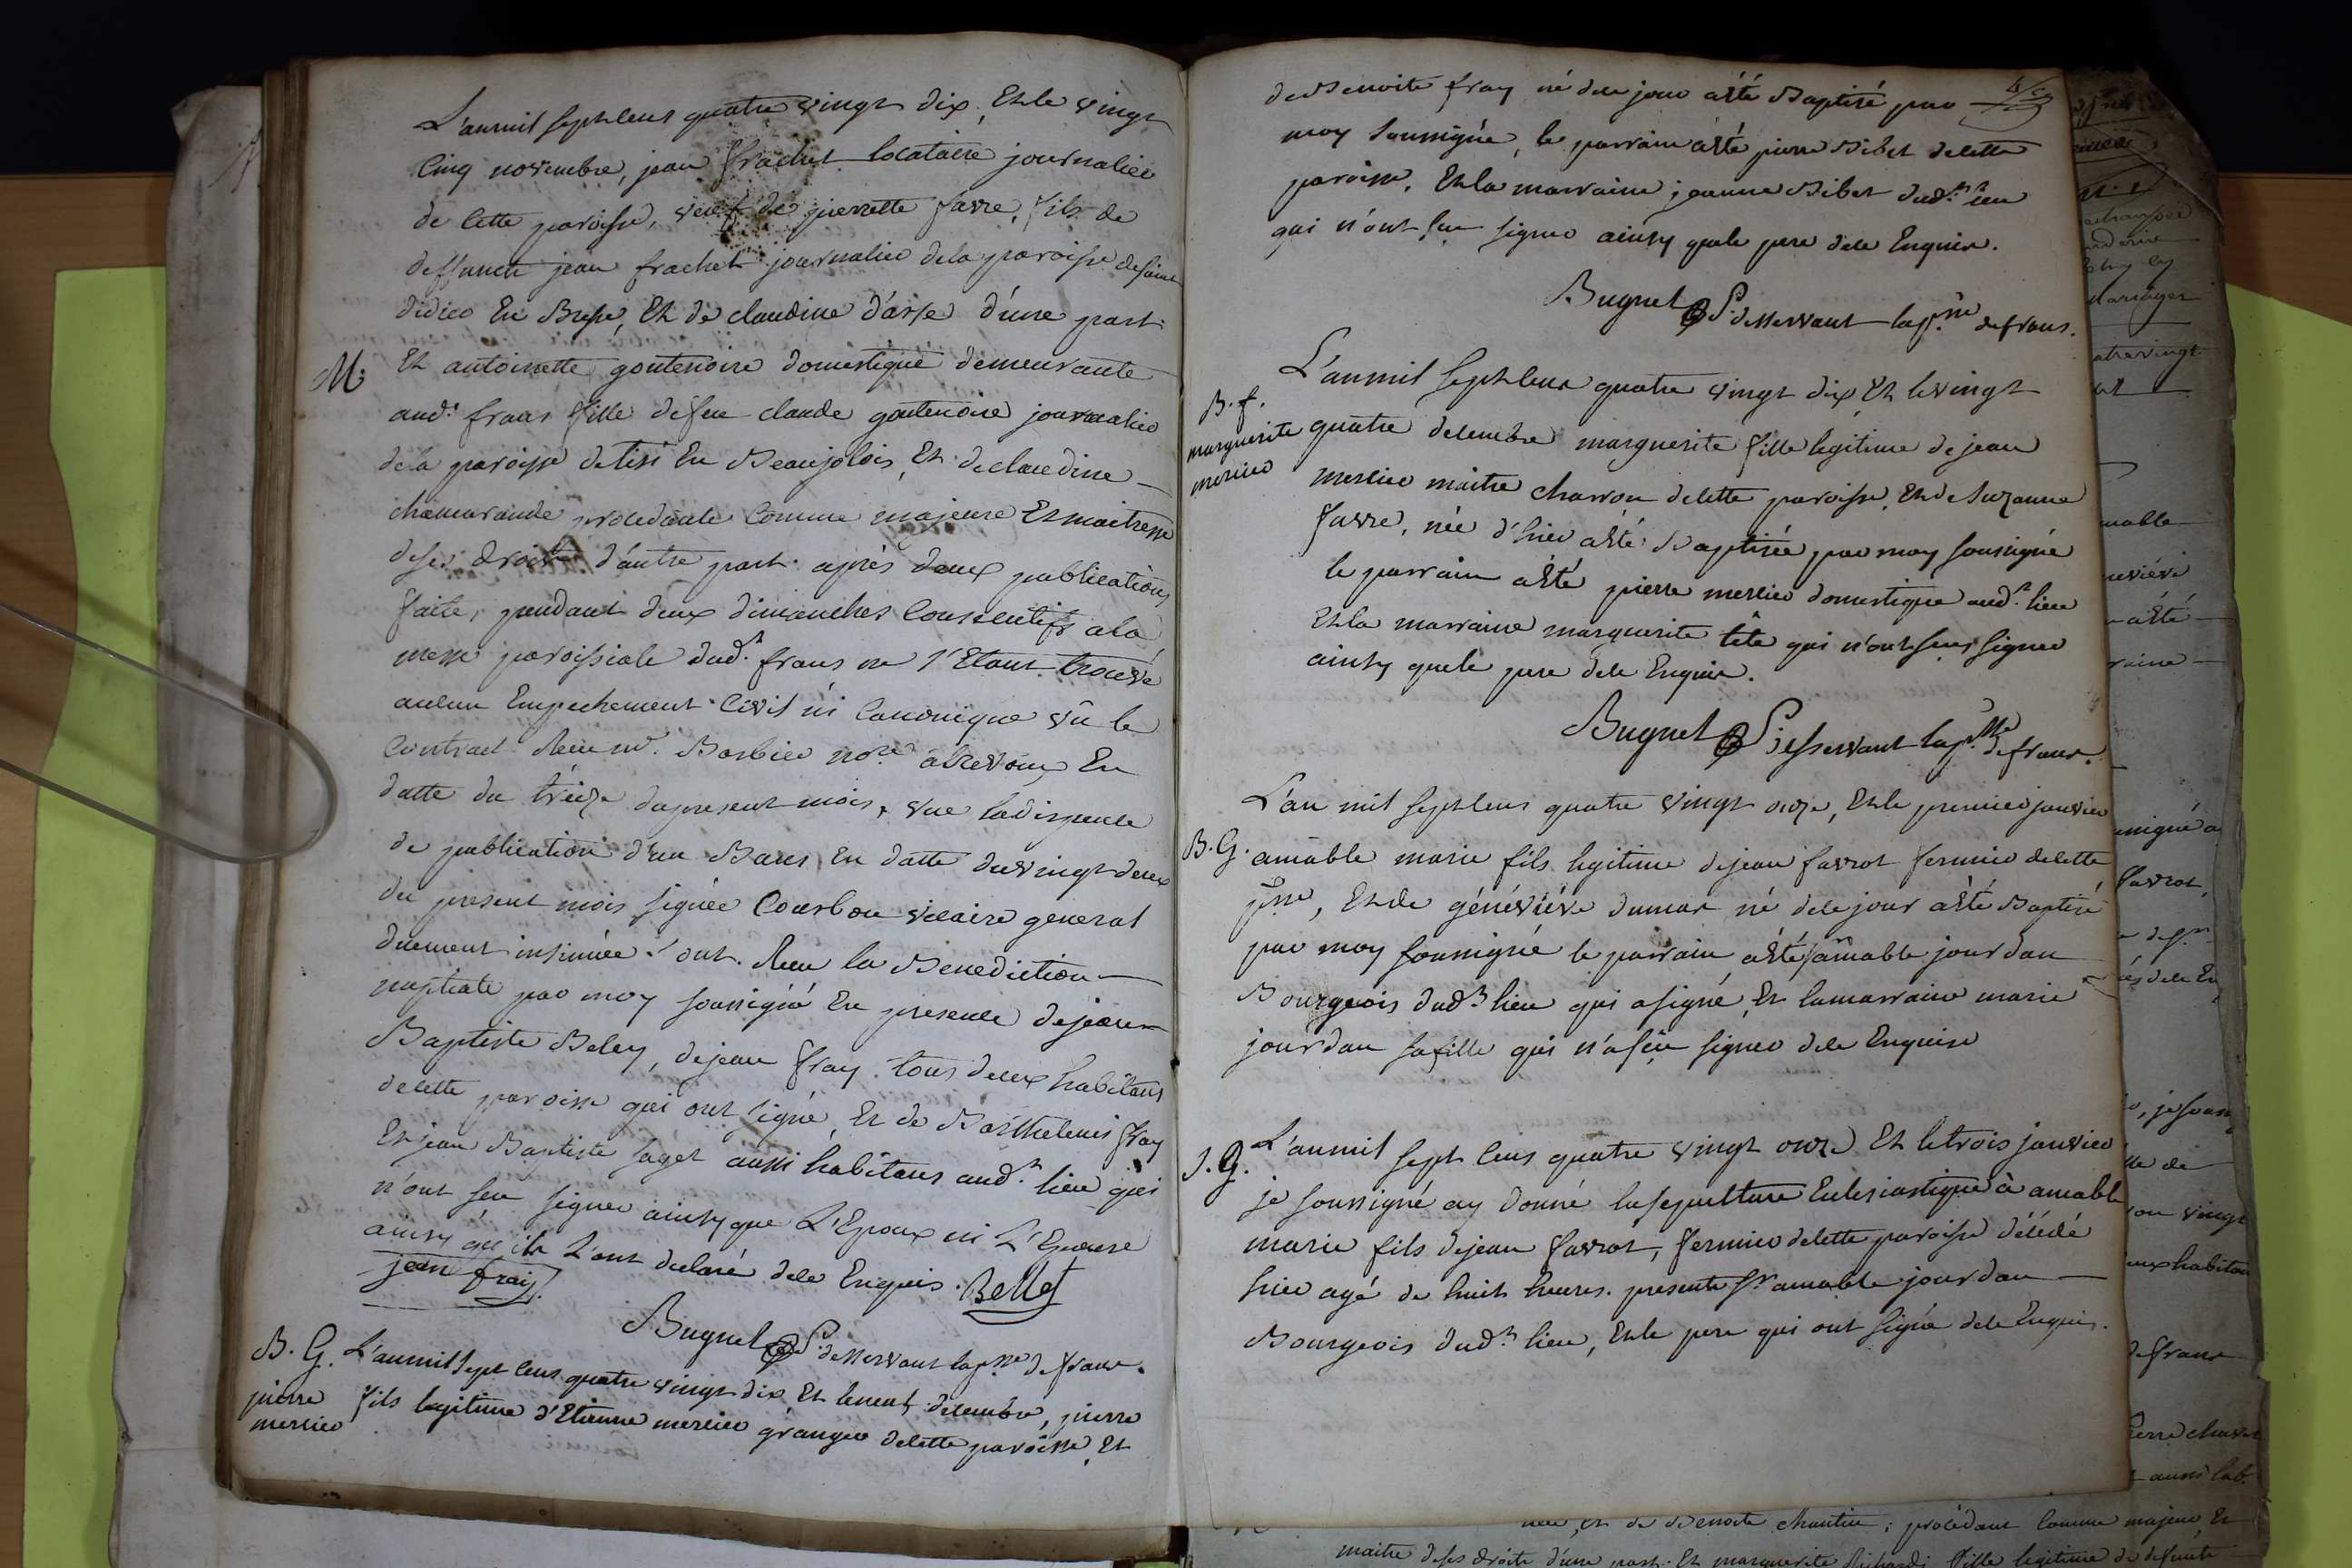 L'an mil sept cens quatre vingt dix, Et le vingt
Cinq novembre, jean frachet locataire journalier
de cette paroisse, veuf de pierrette favre, fils de
deffunct jean frachet journalier dela paroisse desaint
didier En Bresse, Et de claudine d'arse d'une part
M. Et antoinette goutenoire domestique demeurante
aud.t frans fille defeu claude goutenoire journalier
dela paroisse de tisi En Beaujolois, Et declaudine
chamarande procedante Comme majeure Et maitresse
deses droits d'autre part. après deux publications
faites pendant deux dimanches Consecutifs ala
messe paroissiale dud.t frans ne s'Etant trouvé
aucun Empechement Civil ni Canonique vû le
Contract Reçu m.e Barbier no.re àtrevoux En
datte du treize dupresent mois, vue ladispense
de publication d'un Bans En datte duvingt deux
du present mois signée Courbon vicaire general
duement insinuée. ont Reçu la Benediction
nuptiale par moy soussigné En presence dejean
Baptiste Beley, dejean fray tous deux habitans
decette paroisse qui ont signé, Et de Barthelemi fray
Et jean Baptiste saget aussi habitans aud.t lieu qui
n'ont sçu signer ainsy que L'Epoux ni L'Epouse
ainsy qu'ils L'ont declaré dece Enquis. Bellet
jean fray
Bugnet P. desservant lap.sse defrans.
B. G. L'an mil sept cens quatre vingt dix Et leneuf decembre, pierre
pierre mercier fils legitime d'Etienne mercier granger decette paroisse, Et
deBenoite fray né dece jour aété Baptisé par
moy soussigné, le parrain aété pierre Bibet decette
paroisse, Et la marraine jeanne Bibet dud.t lieu
qui n'ont sçu signer ainsy quele pere dece Enquis.
Bugnet P. desservant lap.sse defrans.
L'an mil sept cens quatre vingt dix Et levingt
B. f.
marguerite mercier
quatre decembre marguerite fille legitime dejean
mercier maitre charron decette paroisse, Et de Suzanne
favre, née d'hier aété Baptisée par moy soussigné
le parrain aété pierre mercier domestique aud.t lieu
Et la marraine marguerite tête qui n'ont sçu signer
ainsy quele pere dece Enquis.
Bugnet P. desservant lap.sse defrans.
L'an mil sept cens quatre vingt onze, Et le premier janvier
B. G. amable marie fils legitime dejean favrot fermier decette
p.sse, Et de généviéve dumas né dece jour aété Baptisé
par moy soussigné le parrain aété s.r amable jourdan
Bourgeois dud.t lieu qui asigné, Et lamarraine marie
jourdan safille qui n'asçu signer dece Enquise
S. G. L'an mil sept cens quatre vingt onze Et le trois janvier
je soussigné ay donné lasepulture Eclesiastique à amable
marie fils dejean favrot, fermier decette paroisse décédé
hier agé de huit heures. presents s.r amable jourdan
Bourgeois dud.t lieu, Et le pere qui ont signé dece Enquis.
Et de Benoite chantin; procédant Comme majeur, Et
maitre deses droits d'une part. Et marguerite Richard fille legitime de